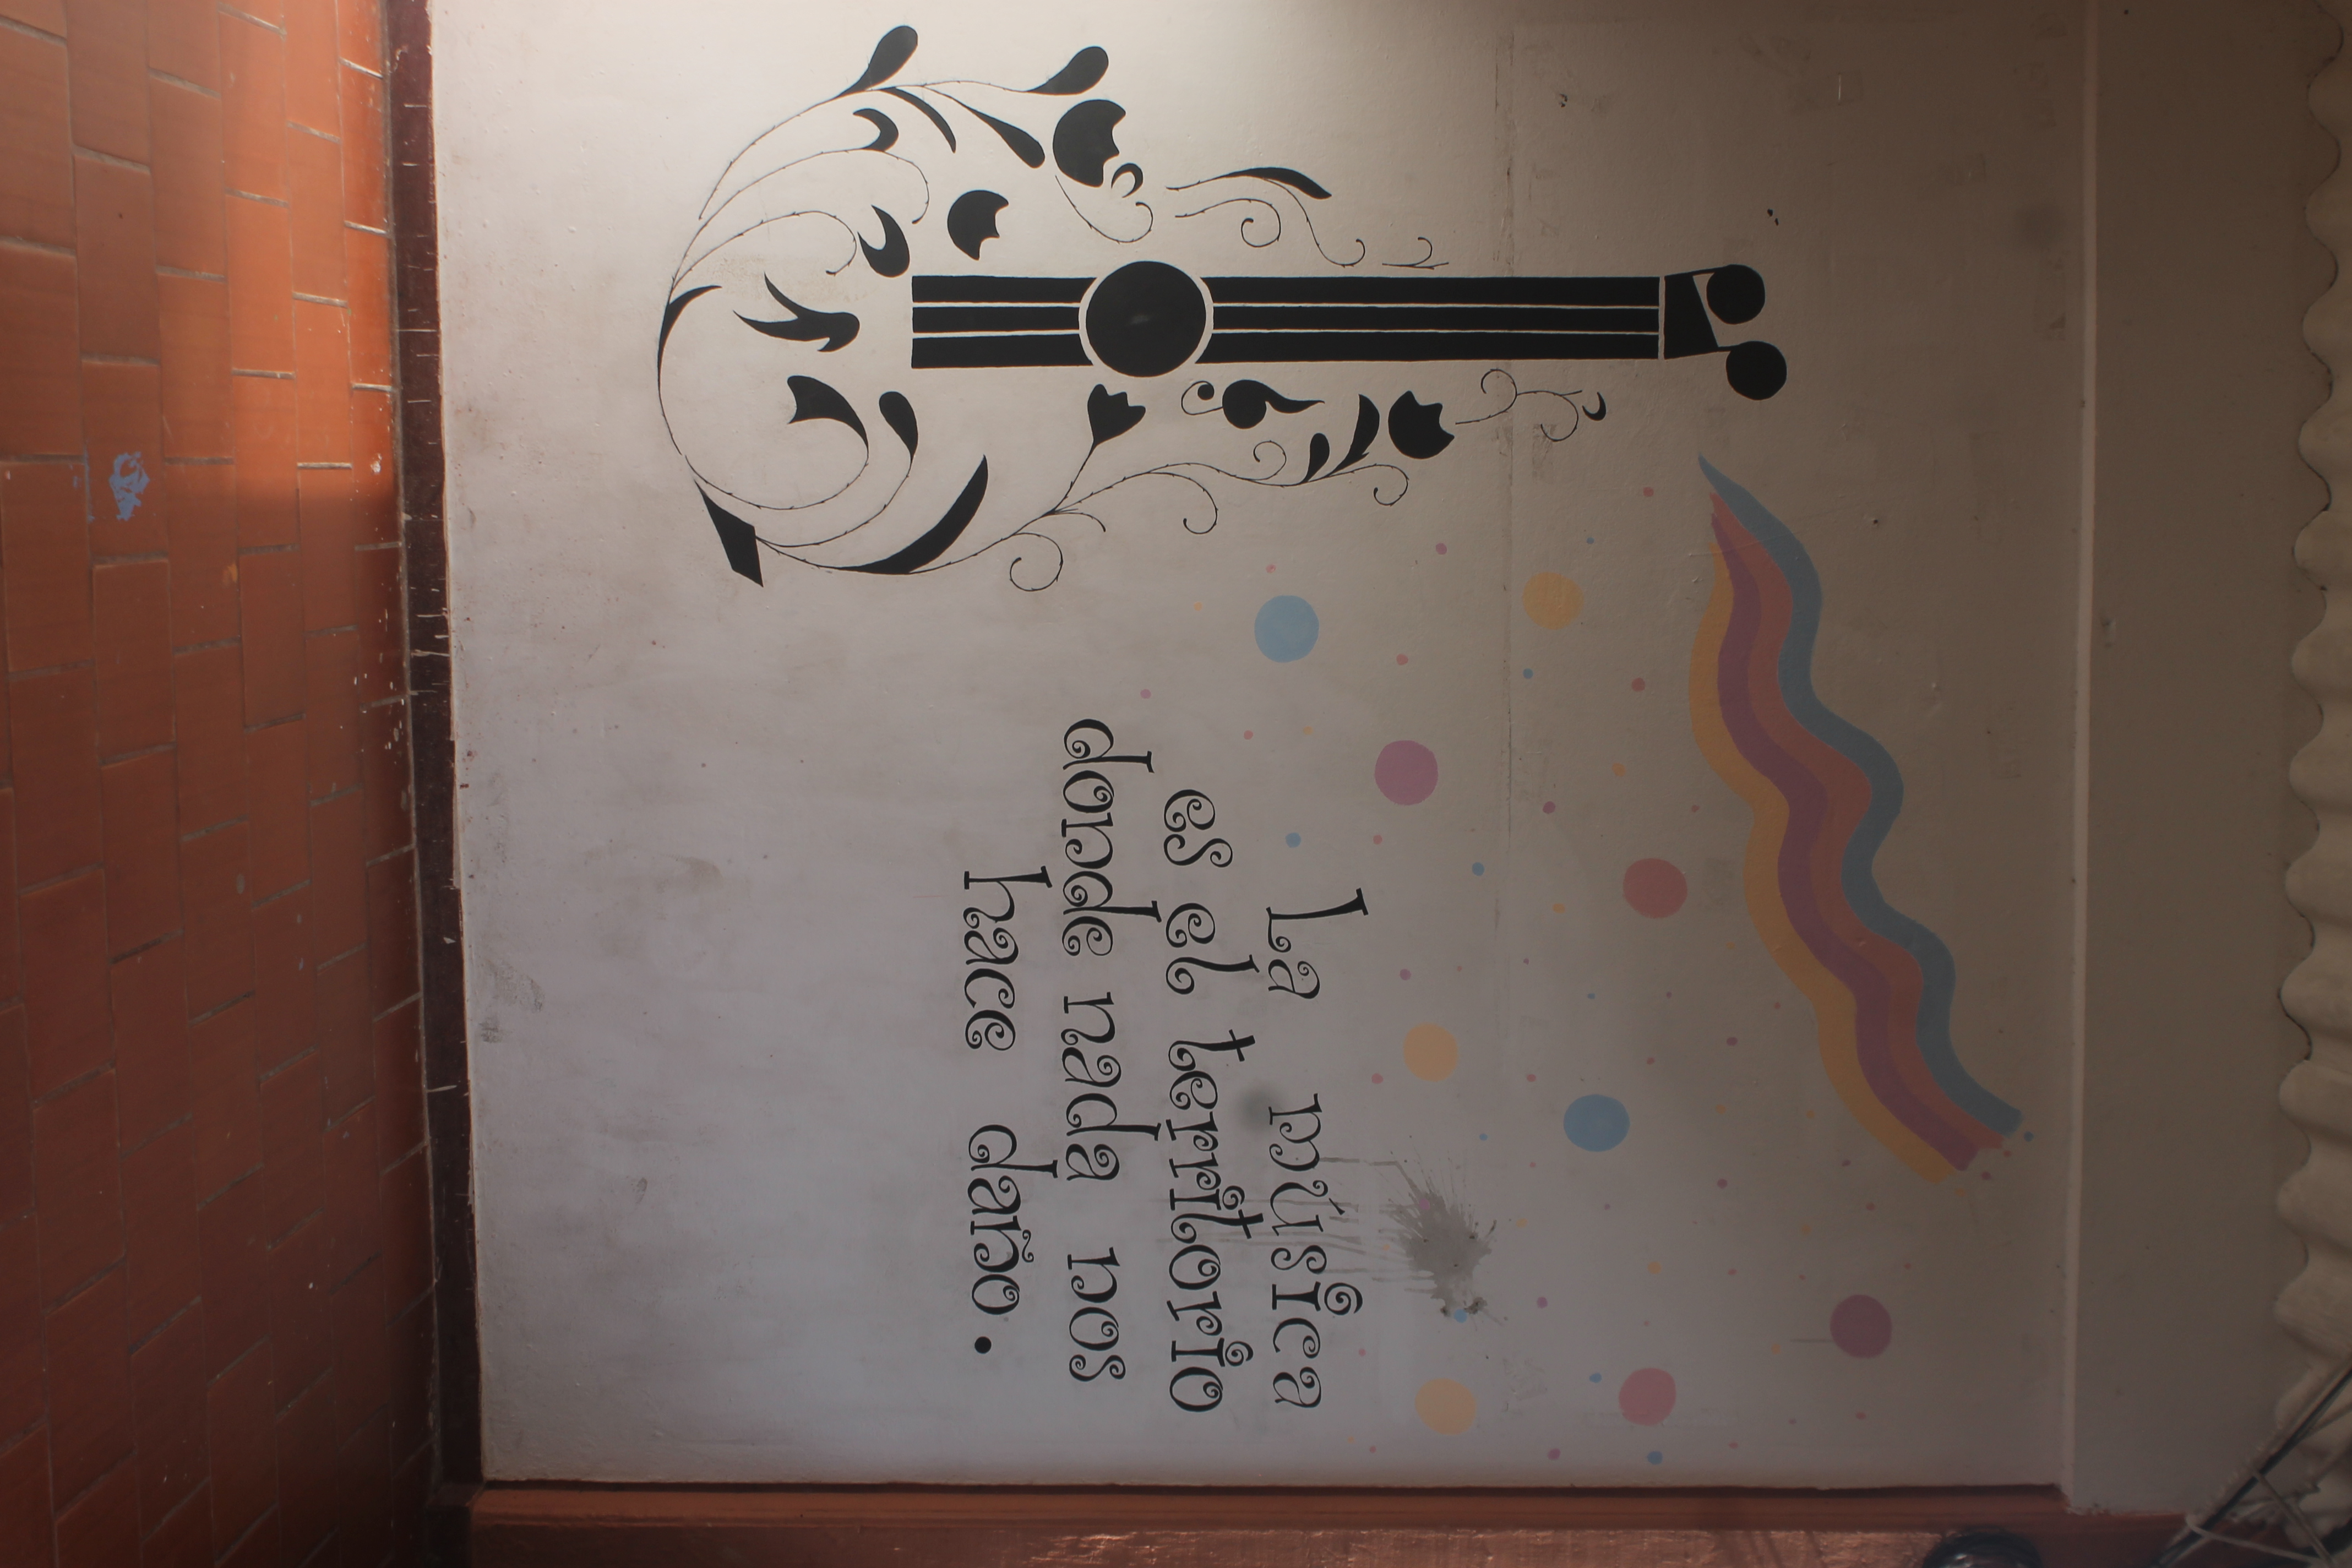 La música
es el territorio
donde nada nos
hace daño.